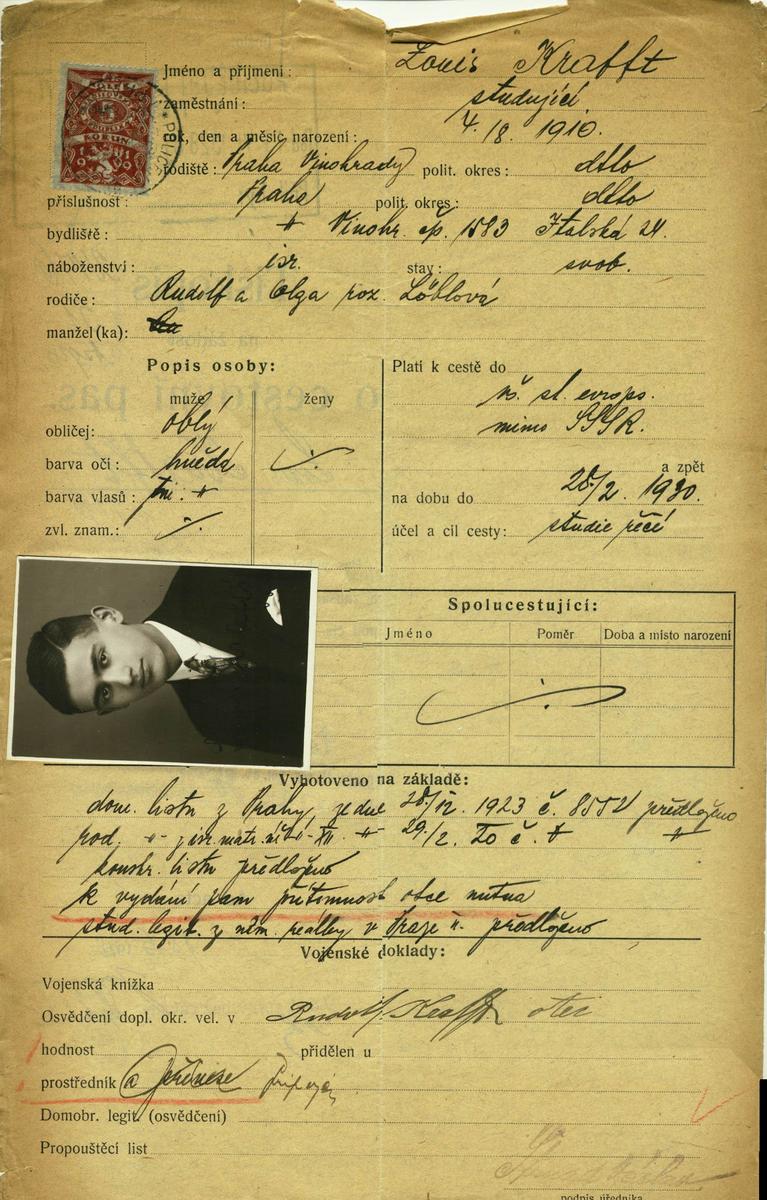 Jméno a příjmení: Louis Krafft
zaměstnání: studující
rok, den a měsíc narození: 4./8. 1910.
rodiště: Praha Vinohrady polit. okres: dtto
příslušnost: Praha polit. okres: dtto
bydliště: " Vinohr. čp. 1583 Italská 24.
náboženství: isr. stav: svob.
rodiče: Rudolf a Olga roz. Löblová
manžel(ka):
Popis osoby:
Platí k cestě do
muže ženy
vš. st. evrops.
obličej: oblý
mimo SSSR.
barva očí: hnědá
a zpět
barva vlasů: tm. "
na dobu do 28/2. 1930.
zvl. znam.: ·/.
účel a cíl cesty: studie řečí
Spolucestující:
Jméno Poměr Doba a místo narození
Vyhotoveno na základě:
dom. listu z Prahy, ze dne 28/12. 1923 č. 8552 předloženo
29/2.
konskr. listu předloženo
k vydání pasu přítomnost otce nutna
stud. legit. z něm. reálky v Praze II. předloženo
Vojenské doklady:
Vojenská knížka
Osvědčení dopl. okr. vel. v Rudolf Krafft otec
hodnost přidělen u
prostředník
Domobr. legit. (osvědčení)
Propouštěcí list
podpis úředníka